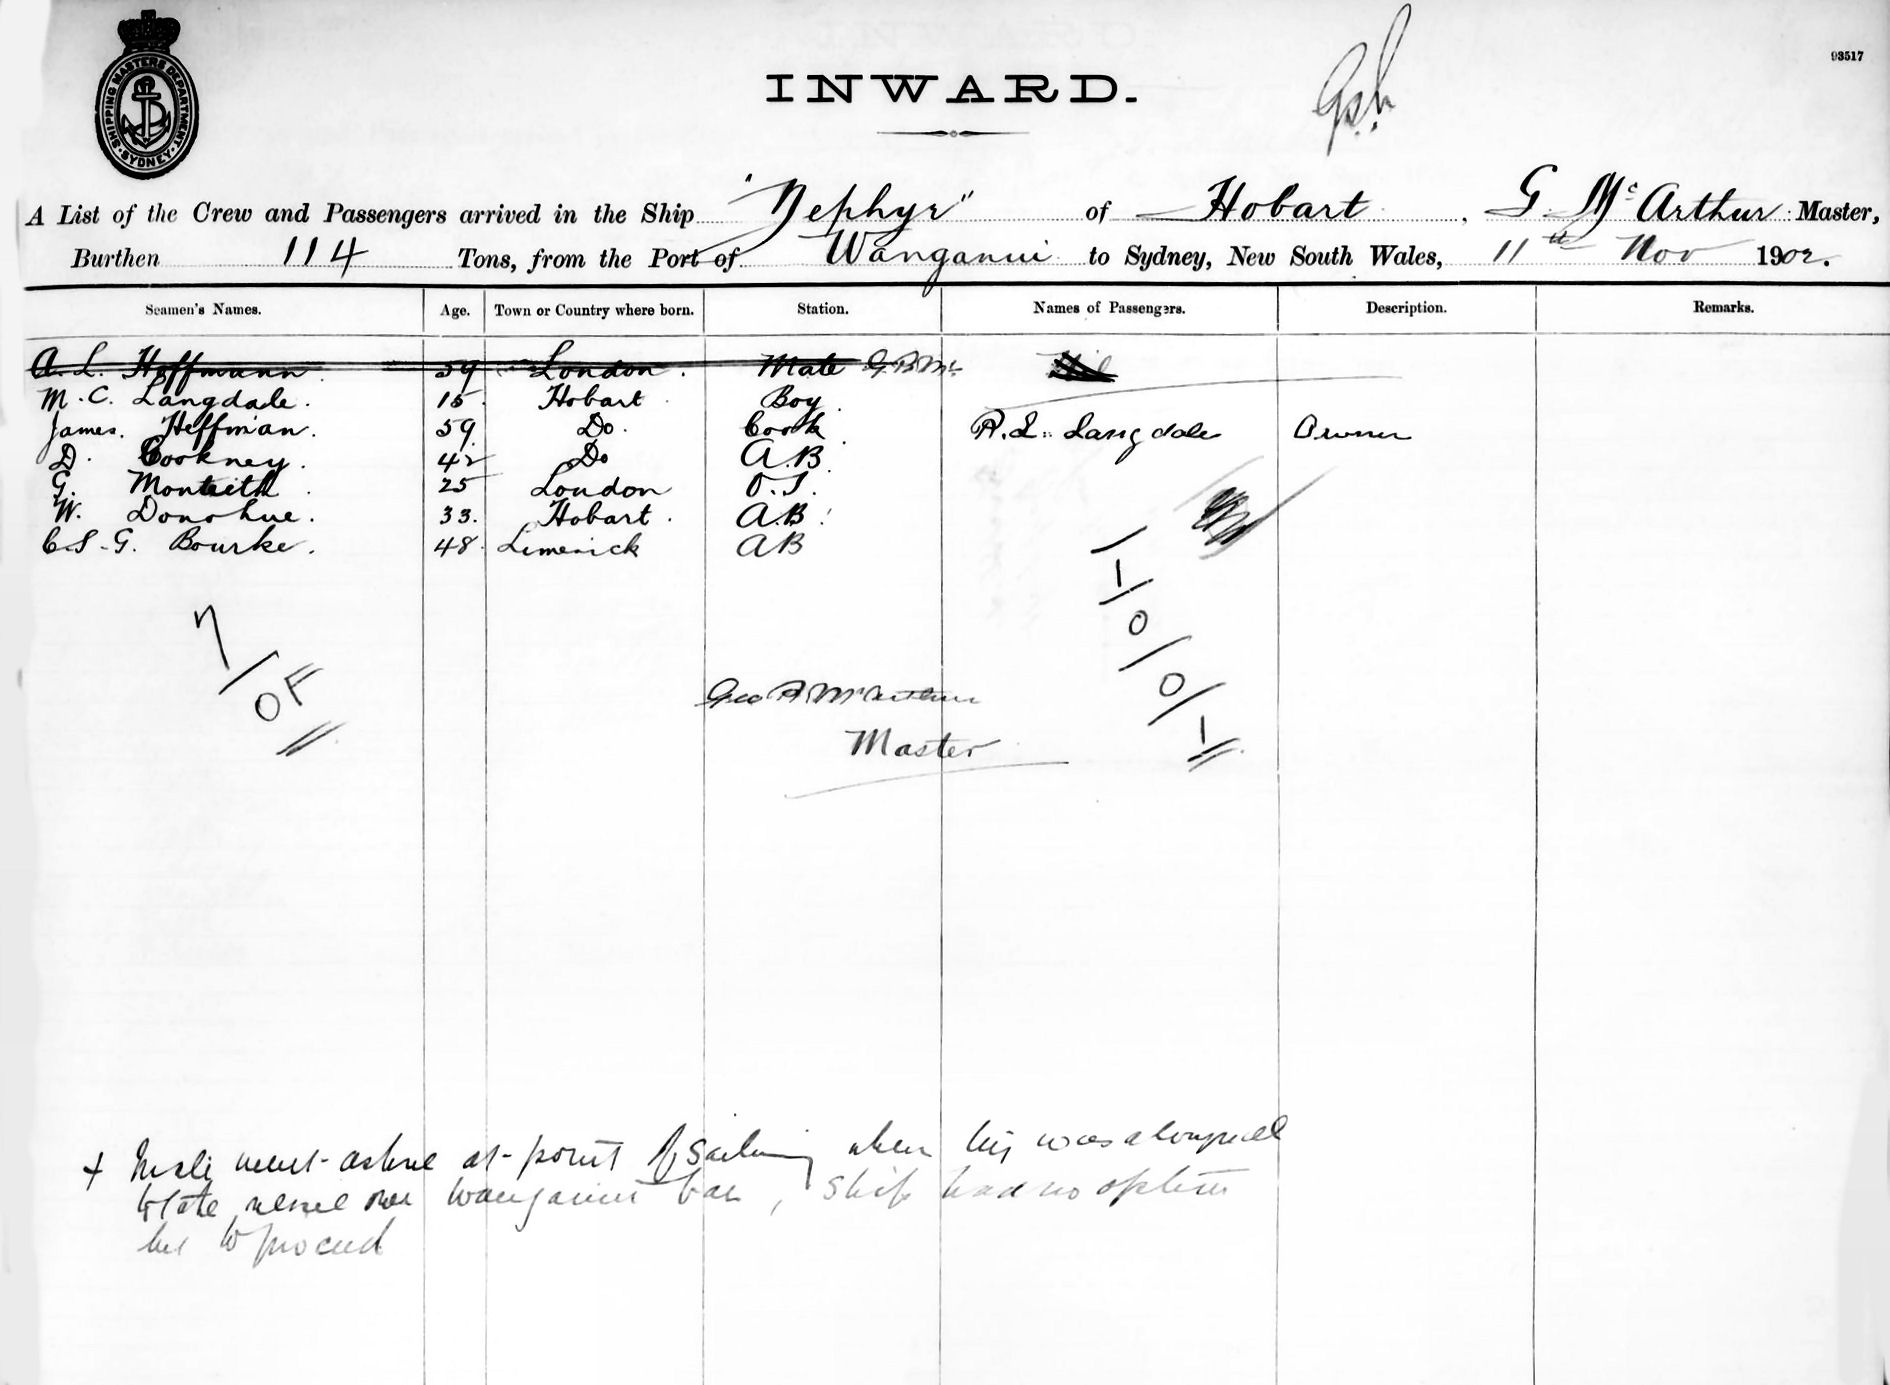 93517
SHIPPING MASTERS DEPARTMENT SYDNEY
INWARD.
A List of the Crew and Passengers arrived in the Ship "Zephyr" of Hobart, G. McArthur Master,
Burthen 114 Tons, from the Port of Wanganui to Sydney, New South Wales, 11th Nov 1902.
Seamen's Names. Age. Town or Country where born. Station. Names of Passengers. Description. Remarks.
A. L. Hoffmann 59 London. Mate G.B.Mc
M. C. Langdale. 15. Hobart Boy.
James. Heffman. 59. Do. Cook. R. L. Langdale Owner
D. Cookney. 42 Do A.B.
G. Monteith 25 London O.S.
W. Donohue. 33. Hobart. A.B.
C. S. G. Bourke. 48. Limerick AB
7/OF
1/0/0/1
Geo B McArthur
Master
+ Mate went ashore at point of sailing when tug was alongside
to take vessel over Wanganui bar, ship had no option
but to proceed